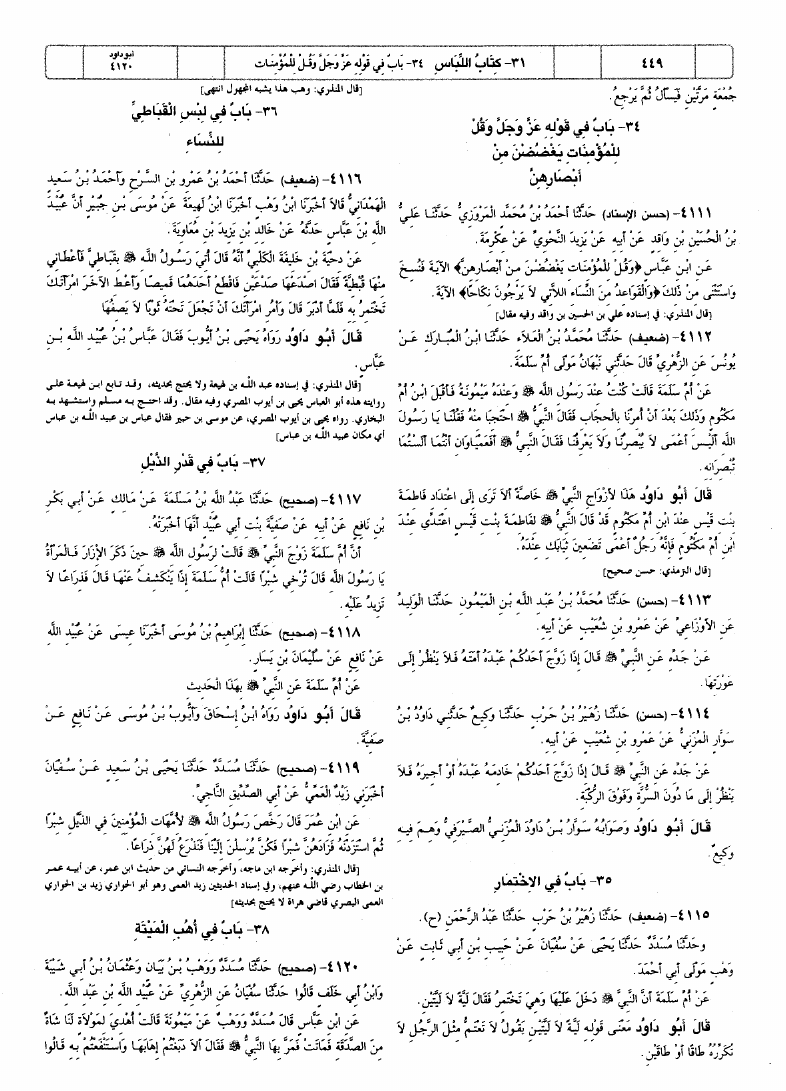 ٤٤٩
٣١- كتابُ اللِّبَاسِ ٣٤- بَابٌ فِي قَوْلِهِ عَزَّ وَجَلَّ وَقُلْ لِلْمُؤْمِنَاتِ
أبو داود
٤١٢٠
جُمُعَةٍ مَرَّتَيْنِ فَيَسْأَلُ ثُمَّ يَرْجِعُ.
٣٤- بَابٌ فِي قَوْلِهِ عَزَّ وَجَلَّ وَقُلْ
لِلْمُؤْمِنَاتِ يَغْضُضْنَ مِنْ
أَبْصَارِهِنَّ
٤١١١- (حسن الإسناد) حَدَّثَنَا أَحْمَدُ بْنُ مُحَمَّدٍ الْمَرْوَزِيُّ حَدَّثَنَا عَلِيُّ
بْنُ الْحُسَيْنِ بْنِ وَاقِدٍ عَنْ أَبِيهِ عَنْ يَزِيدَ النَّحْوِيِّ عَنْ عِكْرِمَةَ.
عَنِ ابْنِ عَبَّاسٍ ﴿وَقُلْ لِلْمُؤْمِنَاتِ يَغْضُضْنَ مِنْ أَبْصَارِهِنَّ﴾ الآيَةَ فَنُسِخَ
وَاسْتُثْنِيَ مِنْ ذَلِكَ ﴿وَالْقَوَاعِدُ مِنَ النِّسَاءِ اللاَّتِي لاَ يَرْجُونَ نِكَاحًا﴾ الآيَةَ.
[قال المنذري: في إسناده علي بن الحسين بن واقد وفيه مقال]
٤١١٢- (ضعيف) حَدَّثَنَا مُحَمَّدُ بْنُ الْعَلاَءِ حَدَّثَنَا ابْنُ الْمُبَارَكِ عَنْ
يُونُسَ عَنِ الزُّهْرِيِّ قَالَ حَدَّثَنِي نَبْهَانُ مَوْلَى أُمِّ سَلَمَةَ.
عَنْ أُمِّ سَلَمَةَ قَالَتْ كُنْتُ عِنْدَ رَسُولِ اللَّهِ ﷺ وَعِنْدَهُ مَيْمُونَةُ فَأَقْبَلَ ابْنُ أُمِّ
مَكْتُومٍ وَذَلِكَ بَعْدَ أَنْ أُمِرْنَا بِالْحِجَابِ فَقَالَ النَّبِيُّ ﷺ احْتَجِبَا مِنْهُ فَقُلْنَا يَا رَسُولَ
اللَّهِ أَلَيْسَ أَعْمَى لاَ يُبْصِرُنَا وَلاَ يَعْرِفُنَا فَقَالَ النَّبِيُّ ﷺ أَفَعَمْيَاوَانِ أَنْتُمَا أَلَسْتُمَا
تُبْصِرَانِهِ.
قَالَ أَبُو دَاوُد هَذَا لأَزْوَاجِ النَّبِيِّ ﷺ خَاصَّةً أَلاَ تَرَى إِلَى اعْتِدَادِ فَاطِمَةَ
بِنْتِ قَيْسٍ عِنْدَ ابْنِ أُمِّ مَكْتُومٍ قَدْ قَالَ النَّبِيُّ ﷺ لِفَاطِمَةَ بِنْتِ قَيْسٍ اعْتَدِّي عِنْدَ
ابْنِ أُمِّ مَكْتُومٍ فَإِنَّهُ رَجُلٌ أَعْمَى تَضَعِينَ ثِيَابَكِ عِنْدَهُ.
[قال الترمذي: حسن صحيح]
٤١١٣- (حسن) حَدَّثَنَا مُحَمَّدُ بْنُ عَبْدِ اللَّهِ بْنِ الْمَيْمُونِ حَدَّثَنَا الْوَلِيدُ
عَنِ الأَوْزَاعِيِّ عَنْ عَمْرِو بْنِ شُعَيْبٍ عَنْ أَبِيهِ.
عَنْ جَدِّهِ عَنِ النَّبِيِّ ﷺ قَالَ إِذَا زَوَّجَ أَحَدُكُمْ عَبْدَهُ أَمَتَهُ فَلاَ يَنْظُرْ إِلَى
عَوْرَتِهَا.
٤١١٤- (حسن) حَدَّثَنَا زُهَيْرُ بْنُ حَرْبٍ حَدَّثَنَا وَكِيعٌ حَدَّثَنِي دَاوُدُ بْنُ
سَوَّارٍ الْمُزَنِيُّ عَنْ عَمْرِو بْنِ شُعَيْبٍ عَنْ أَبِيهِ.
عَنْ جَدِّهِ عَنِ النَّبِيِّ ﷺ قَالَ إِذَا زَوَّجَ أَحَدُكُمْ خَادِمَهُ عَبْدَهُ أَوْ أَجِيرَهُ فَلاَ
يَنْظُرْ إِلَى مَا دُونَ السُّرَّةِ وَفَوْقَ الرُّكْبَةِ.
قَالَ أَبُو دَاوُد وَصَوَابُهُ سَوَّارُ بْنُ دَاوُدَ الْمُزَنِيُّ الصَّيْرَفِيُّ وَهِمَ فِيهِ
وَكِيعٌ.
٣٥- بَابٌ فِي الاِخْتِمَارِ
٤١١٥- (ضعيف) حَدَّثَنَا زُهَيْرُ بْنُ حَرْبٍ حَدَّثَنَا عَبْدُ الرَّحْمَنِ (ح).
وحَدَّثَنَا مُسَدَّدٌ حَدَّثَنَا يَحْيَى عَنْ سُفْيَانَ عَنْ حَبِيبِ بْنِ أَبِي ثَابِتٍ عَنْ
وَهْبٍ مَوْلَى أَبِي أَحْمَدَ.
عَنْ أُمِّ سَلَمَةَ أَنَّ النَّبِيَّ ﷺ دَخَلَ عَلَيْهَا وَهِيَ تَخْتَمِرُ فَقَالَ لَيَّةً لاَ لَيَّتَيْنِ.
قَالَ أَبُو دَاوُد مَعْنَى قَوْلِهِ لَيَّةً لاَ لَيَّتَيْنِ يَقُولُ لاَ تَعْتَمُّ مِثْلَ الرَّجُلِ لاَ
تُكَرِّرُهُ طَاقًا أَوْ طَاقَيْنِ.
[قال المنذري: وهب هذا يشبه المجهول انتهى]
٣٦- بَابٌ فِي لِبْسِ الْقَبَاطِيِّ
لِلنِّسَاءِ
٤١١٦- (ضعيف) حَدَّثَنَا أَحْمَدُ بْنُ عَمْرِو بْنِ السَّرْحِ وَأَحْمَدُ بْنُ سَعِيدٍ
الْهَمْدَانِيُّ قَالاَ أَخْبَرَنَا ابْنُ وَهْبٍ أَخْبَرَنَا ابْنُ لَهِيعَةَ عَنْ مُوسَى بْنِ جُبَيْرٍ أَنَّ عُبَيْدَ
اللَّهِ بْنَ عَبَّاسٍ حَدَّثَهُ عَنْ خَالِدِ بْنِ يَزِيدَ بْنِ مُعَاوِيَةَ.
عَنْ دِحْيَةَ بْنِ خَلِيفَةَ الْكَلْبِيِّ أَنَّهُ قَالَ أُتِيَ رَسُولُ اللَّهِ ﷺ بِقَبَاطِيَّ فَأَعْطَانِي
مِنْهَا قُبْطِيَّةً فَقَالَ اصْدَعْهَا صَدْعَيْنِ فَاقْطَعْ أَحَدَهُمَا قَمِيصًا وَأَعْطِ الآخَرَ امْرَأَتَكَ
تَخْتَمِرُ بِهِ فَلَمَّا أَدْبَرَ قَالَ وَأْمُرِ امْرَأَتَكَ أَنْ تَجْعَلَ تَحْتَهُ ثَوْبًا لاَ يَصِفُهَا
قَالَ أَبُو دَاوُد رَوَاهُ يَحْيَى بْنُ أَيُّوبَ فَقَالَ عَبَّاسُ بْنُ عُبَيْدِ اللَّهِ بْنِ
عَبَّاسٍ.
[قال المنذري: في إسناده عبد الله بن لهيعة ولا يحتج بحديثه، وقد تابع ابن لهيعة على
روايته هذه أبو العباس يحيى بن أيوب المصري وفيه مقال. وقد احتج به مسلم واستشهد به
البخاري. رواه يحيى بن أيوب المصري، عن موسى بن جبير فقال عباس بن عبيد الله بن عباس
أي مكان عبيد الله بن عباس]
٣٧- بَابٌ فِي قَدْرِ الذَّيْلِ
٤١١٧- (صحيح) حَدَّثَنَا عَبْدُ اللَّهِ بْنُ مَسْلَمَةَ عَنْ مَالِكٍ عَنْ أَبِي بَكْرِ
بْنِ نَافِعٍ عَنْ أَبِيهِ عَنْ صَفِيَّةَ بِنْتِ أَبِي عُبَيْدٍ أَنَّهَا أَخْبَرَتْهُ.
أَنَّ أُمَّ سَلَمَةَ زَوْجَ النَّبِيِّ ﷺ قَالَتْ لِرَسُولِ اللَّهِ ﷺ حِينَ ذَكَرَ الإِزَارَ فَالْمَرْأَةُ
يَا رَسُولَ اللَّهِ قَالَ تُرْخِي شِبْرًا قَالَتْ أُمُّ سَلَمَةَ إِذًا يَنْكَشِفُ عَنْهَا قَالَ فَذِرَاعًا لاَ
تَزِيدُ عَلَيْهِ.
٤١١٨- (صحيح) حَدَّثَنَا إِبْرَاهِيمُ بْنُ مُوسَى أَخْبَرَنَا عِيسَى عَنْ عُبَيْدِ اللَّهِ
عَنْ نَافِعٍ عَنْ سُلَيْمَانَ بْنِ يَسَارٍ.
عَنْ أُمِّ سَلَمَةَ عَنِ النَّبِيِّ ﷺ بِهَذَا الْحَدِيثِ
قَالَ أَبُو دَاوُد رَوَاهُ ابْنُ إِسْحَاقَ وَأَيُّوبُ بْنُ مُوسَى عَنْ نَافِعٍ عَنْ
صَفِيَّةَ.
٤١١٩- (صحيح) حَدَّثَنَا مُسَدَّدٌ حَدَّثَنَا يَحْيَى بْنُ سَعِيدٍ عَنْ سُفْيَانَ
أَخْبَرَنِي زَيْدٌ الْعَمِّيُّ عَنْ أَبِي الصِّدِّيقِ النَّاجِيِّ.
عَنِ ابْنِ عُمَرَ قَالَ رَخَّصَ رَسُولُ اللَّهِ ﷺ لأُمَّهَاتِ الْمُؤْمِنِينَ فِي الذَّيْلِ شِبْرًا
ثُمَّ اسْتَزَدْنَهُ فَزَادَهُنَّ شِبْرًا فَكُنَّ يُرْسِلْنَ إِلَيْنَا فَنَذْرَعُ لَهُنَّ ذِرَاعًا.
[قال المنذري: وأخرجه ابن ماجه، وأخرجه النسائي من حديث ابن عمر، عن أبيه عمر
بن الخطاب رضي الله عنهم، وفي إسناد الحديثين زيد العمى وهو أبو الحواري زيد بن الحواري
العمى البصري قاضي هراة لا يحتج بحديثه]
٣٨- بَابٌ فِي أُهُبِ الْمَيْتَةِ
٤١٢٠- (صحيح) حَدَّثَنَا مُسَدَّدٌ وَوَهْبُ بْنُ بَيَانٍ وَعُثْمَانُ بْنُ أَبِي شَيْبَةَ
وَابْنُ أَبِي خَلَفٍ قَالُوا حَدَّثَنَا سُفْيَانُ عَنِ الزُّهْرِيِّ عَنْ عُبَيْدِ اللَّهِ بْنِ عَبْدِ اللَّهِ.
عَنِ ابْنِ عَبَّاسٍ قَالَ مُسَدَّدٌ وَوَهْبٌ عَنْ مَيْمُونَةَ قَالَتْ أُهْدِيَ لِمَوْلاَةٍ لَنَا شَاةٌ
مِنَ الصَّدَقَةِ فَمَاتَتْ فَمَرَّ بِهَا النَّبِيُّ ﷺ فَقَالَ أَلاَ دَبَغْتُمْ إِهَابَهَا وَاسْتَنْفَعْتُمْ بِهِ قَالُوا